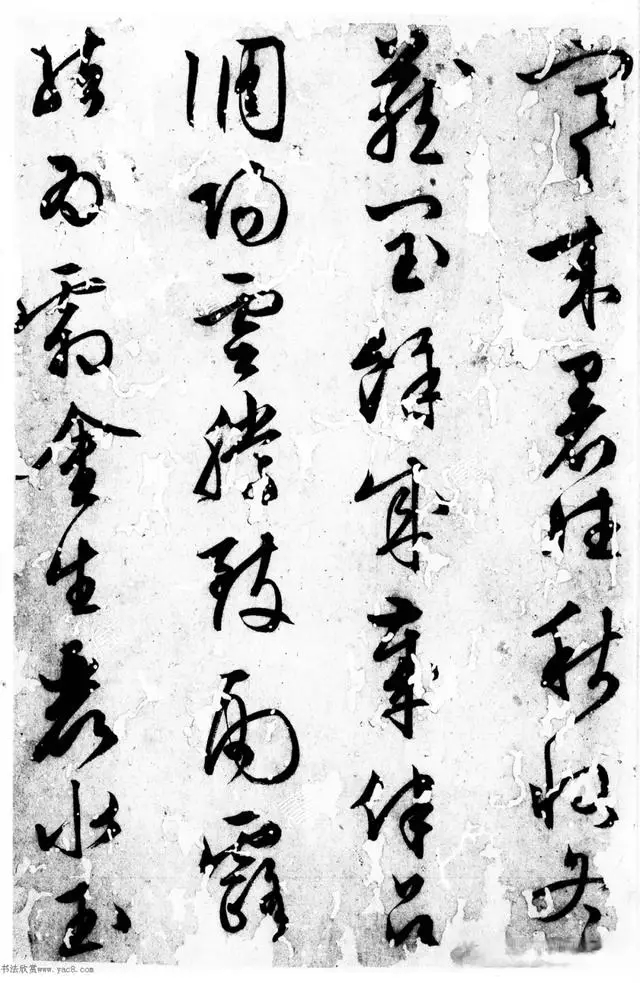 寒来暑往秋收冬
藏閏餘成歲律吕
調陽雲騰致雨露
結為霜金生麗水玉
书法欣赏www.yac8.com